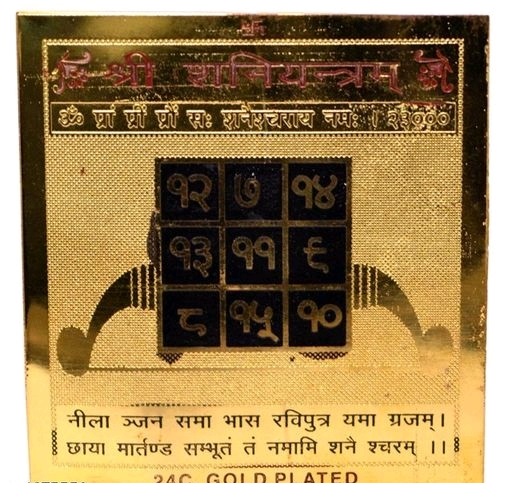 श्री शनियन्त्रम्
ॐ प्रां प्रीं प्रौं सः शनैश्चराय नमः । २३०००
१२ ७ १४
१३ ११ ९
८ १५ १०
नीला ञ्जन समा भास रविपुत्र यमा ग्रजम् ।
छाया मार्तण्ड सम्भूतं तं नमामि शनै श्चरम् ।।
24C. GOLD PLATED